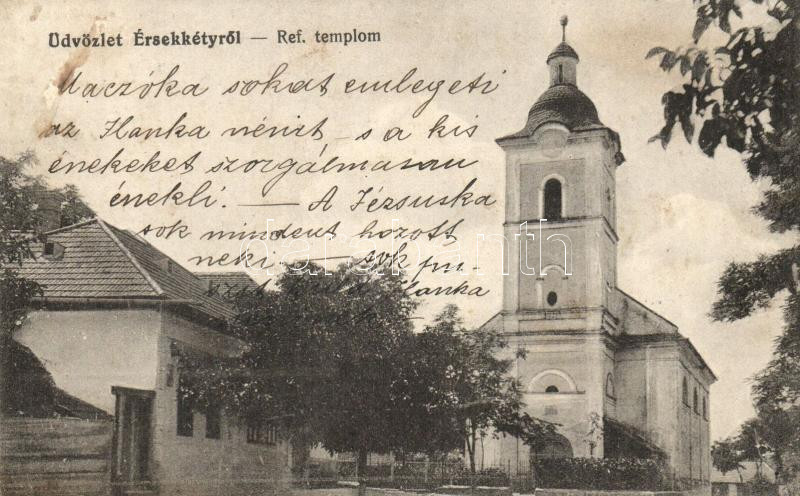 Üdvözlet Érsekkétyről — Ref. templom
Maczóka sokat emlegeti
az Ilonka nénit — s a kis
énekeket szorgalmasan
énekli. — A Jézsuska
sok mindent hozott
neki — sok pu-
Ilonka
darabanth